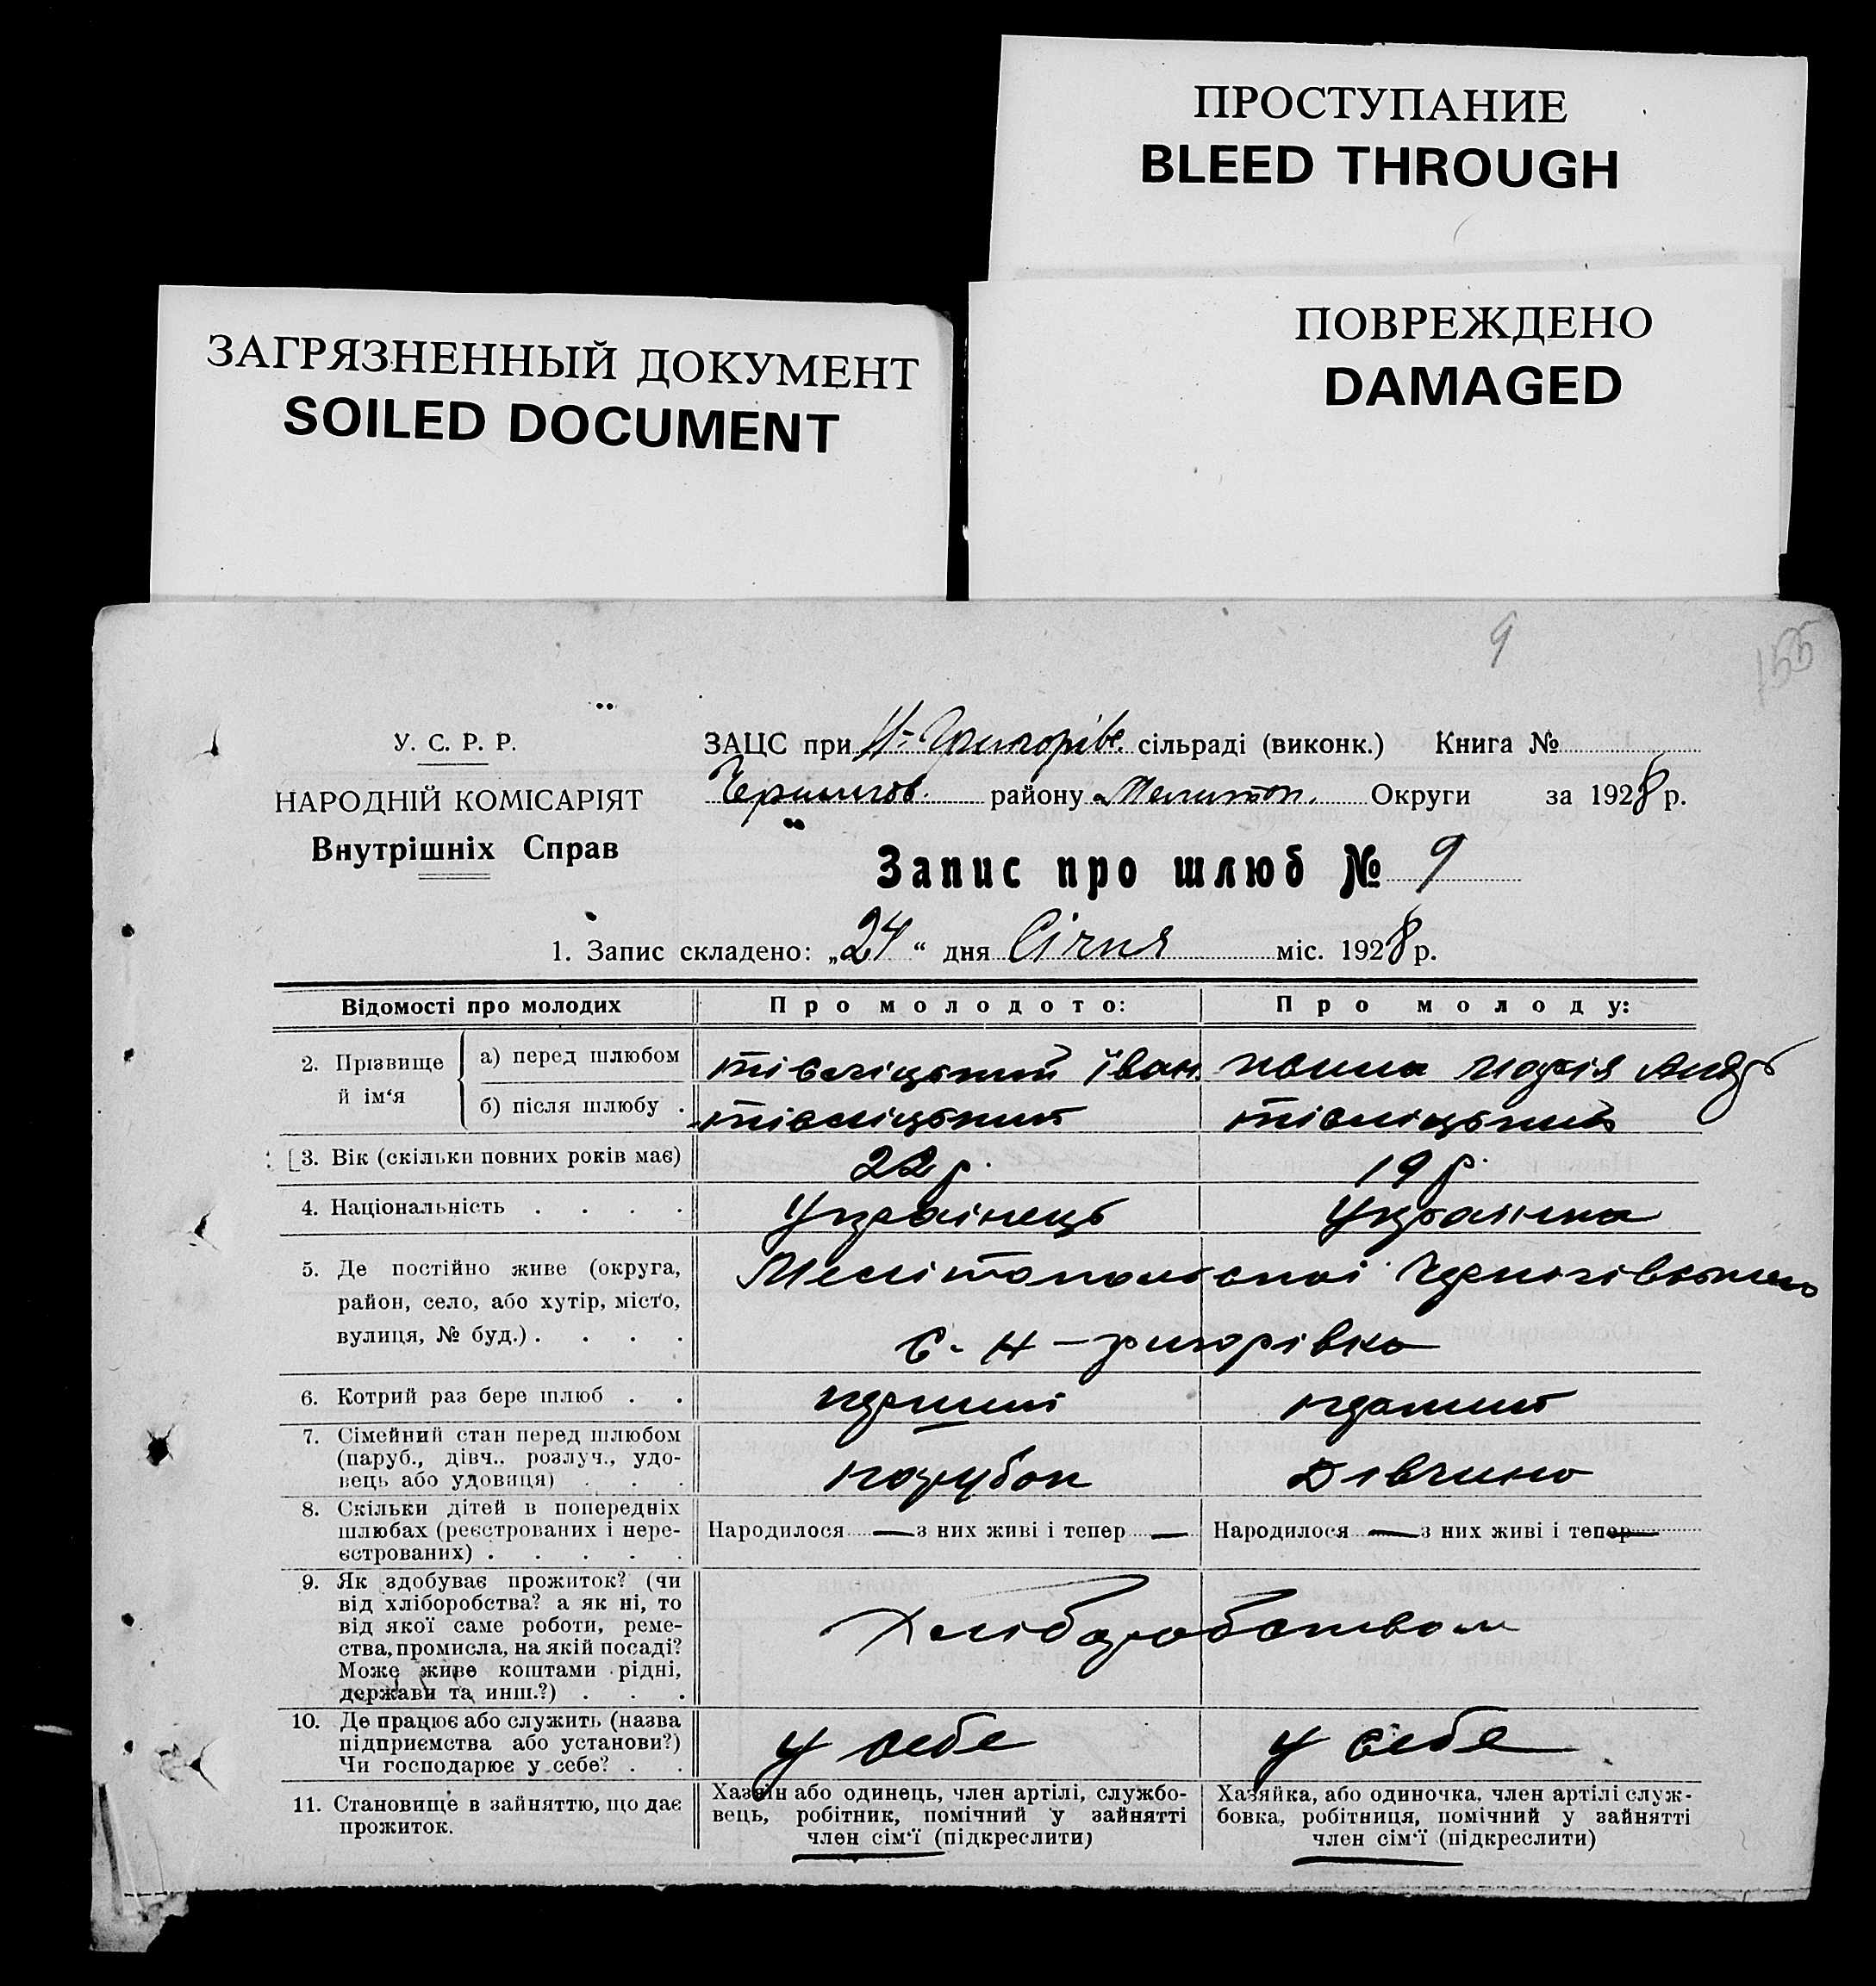 ПРОСТУПАНИЕ
BLEED THROUGH
ПОВРЕЖДЕНО
DAMAGED
ЗАГРЯЗНЕННЫЙ ДОКУМЕНТ
SOILED DOCUMENT
9
155
У. С. Р. Р.
НАРОДНІЙ КОМІСАРІЯТ
Внутрішніх Справ
ЗАЦС при Н-Григорівс. сільраді (виконк.) Книга №
Чернигов. району Мелитоп. Округи за 1928 р.
Запис про шлюб № 9
1. Запис складено: „24“ дня Січня міс. 1928 р.
Відомості про молодих
Про молодого:
Про молоду:
2. Прізвище й ім‘я
а) перед шлюбом
Іван
б) після шлюбу .
3. Вік (скільки повних років має)
22 р.
19 р.
4. Національність . . . .
Українець
Українка
5. Де постійно живе (округа,
район, село, або хутір, місто,
вулиця, № буд.) . . . .
Мелітопольскоі
с. Н-григорівка
6. Котрий раз бере шлюб . .
перший
7. Сімейний стан перед шлюбом
(паруб., дівч.. розлуч., удо-
вець або удовиця) . . .
парубок
Дівчина
8. Скільки дітей в попередніх
шлюбах (реєстрованих і нере-
єстрованих) . . . . .
Народилося — з них живі і тепер —
Народилося — з них живі і тепер —
9. Як здобуває прожиток? (чи
від хліборобства? а як ні, то
від якої саме роботи, реме-
ства, промисла, на якій посаді?
Може живе коштами рідні,
держави та инш.?) . . .
Хліборобством
10. Де працює або служить (назва
підприємства або установи?)
Чи господарює у себе? . .
у себе
у себе
11. Становище в зайняттю, що дає
прожиток.
Хазяїн або одинець, член артілі, службо-
вець, робітник, помічний у зайнятті
член сім‘ї (підкреслити)
Хазяйка, або одиночка, член артілі служ-
бовка, робітниця, помічний у зайнятті
член сім‘ї (підкреслити)